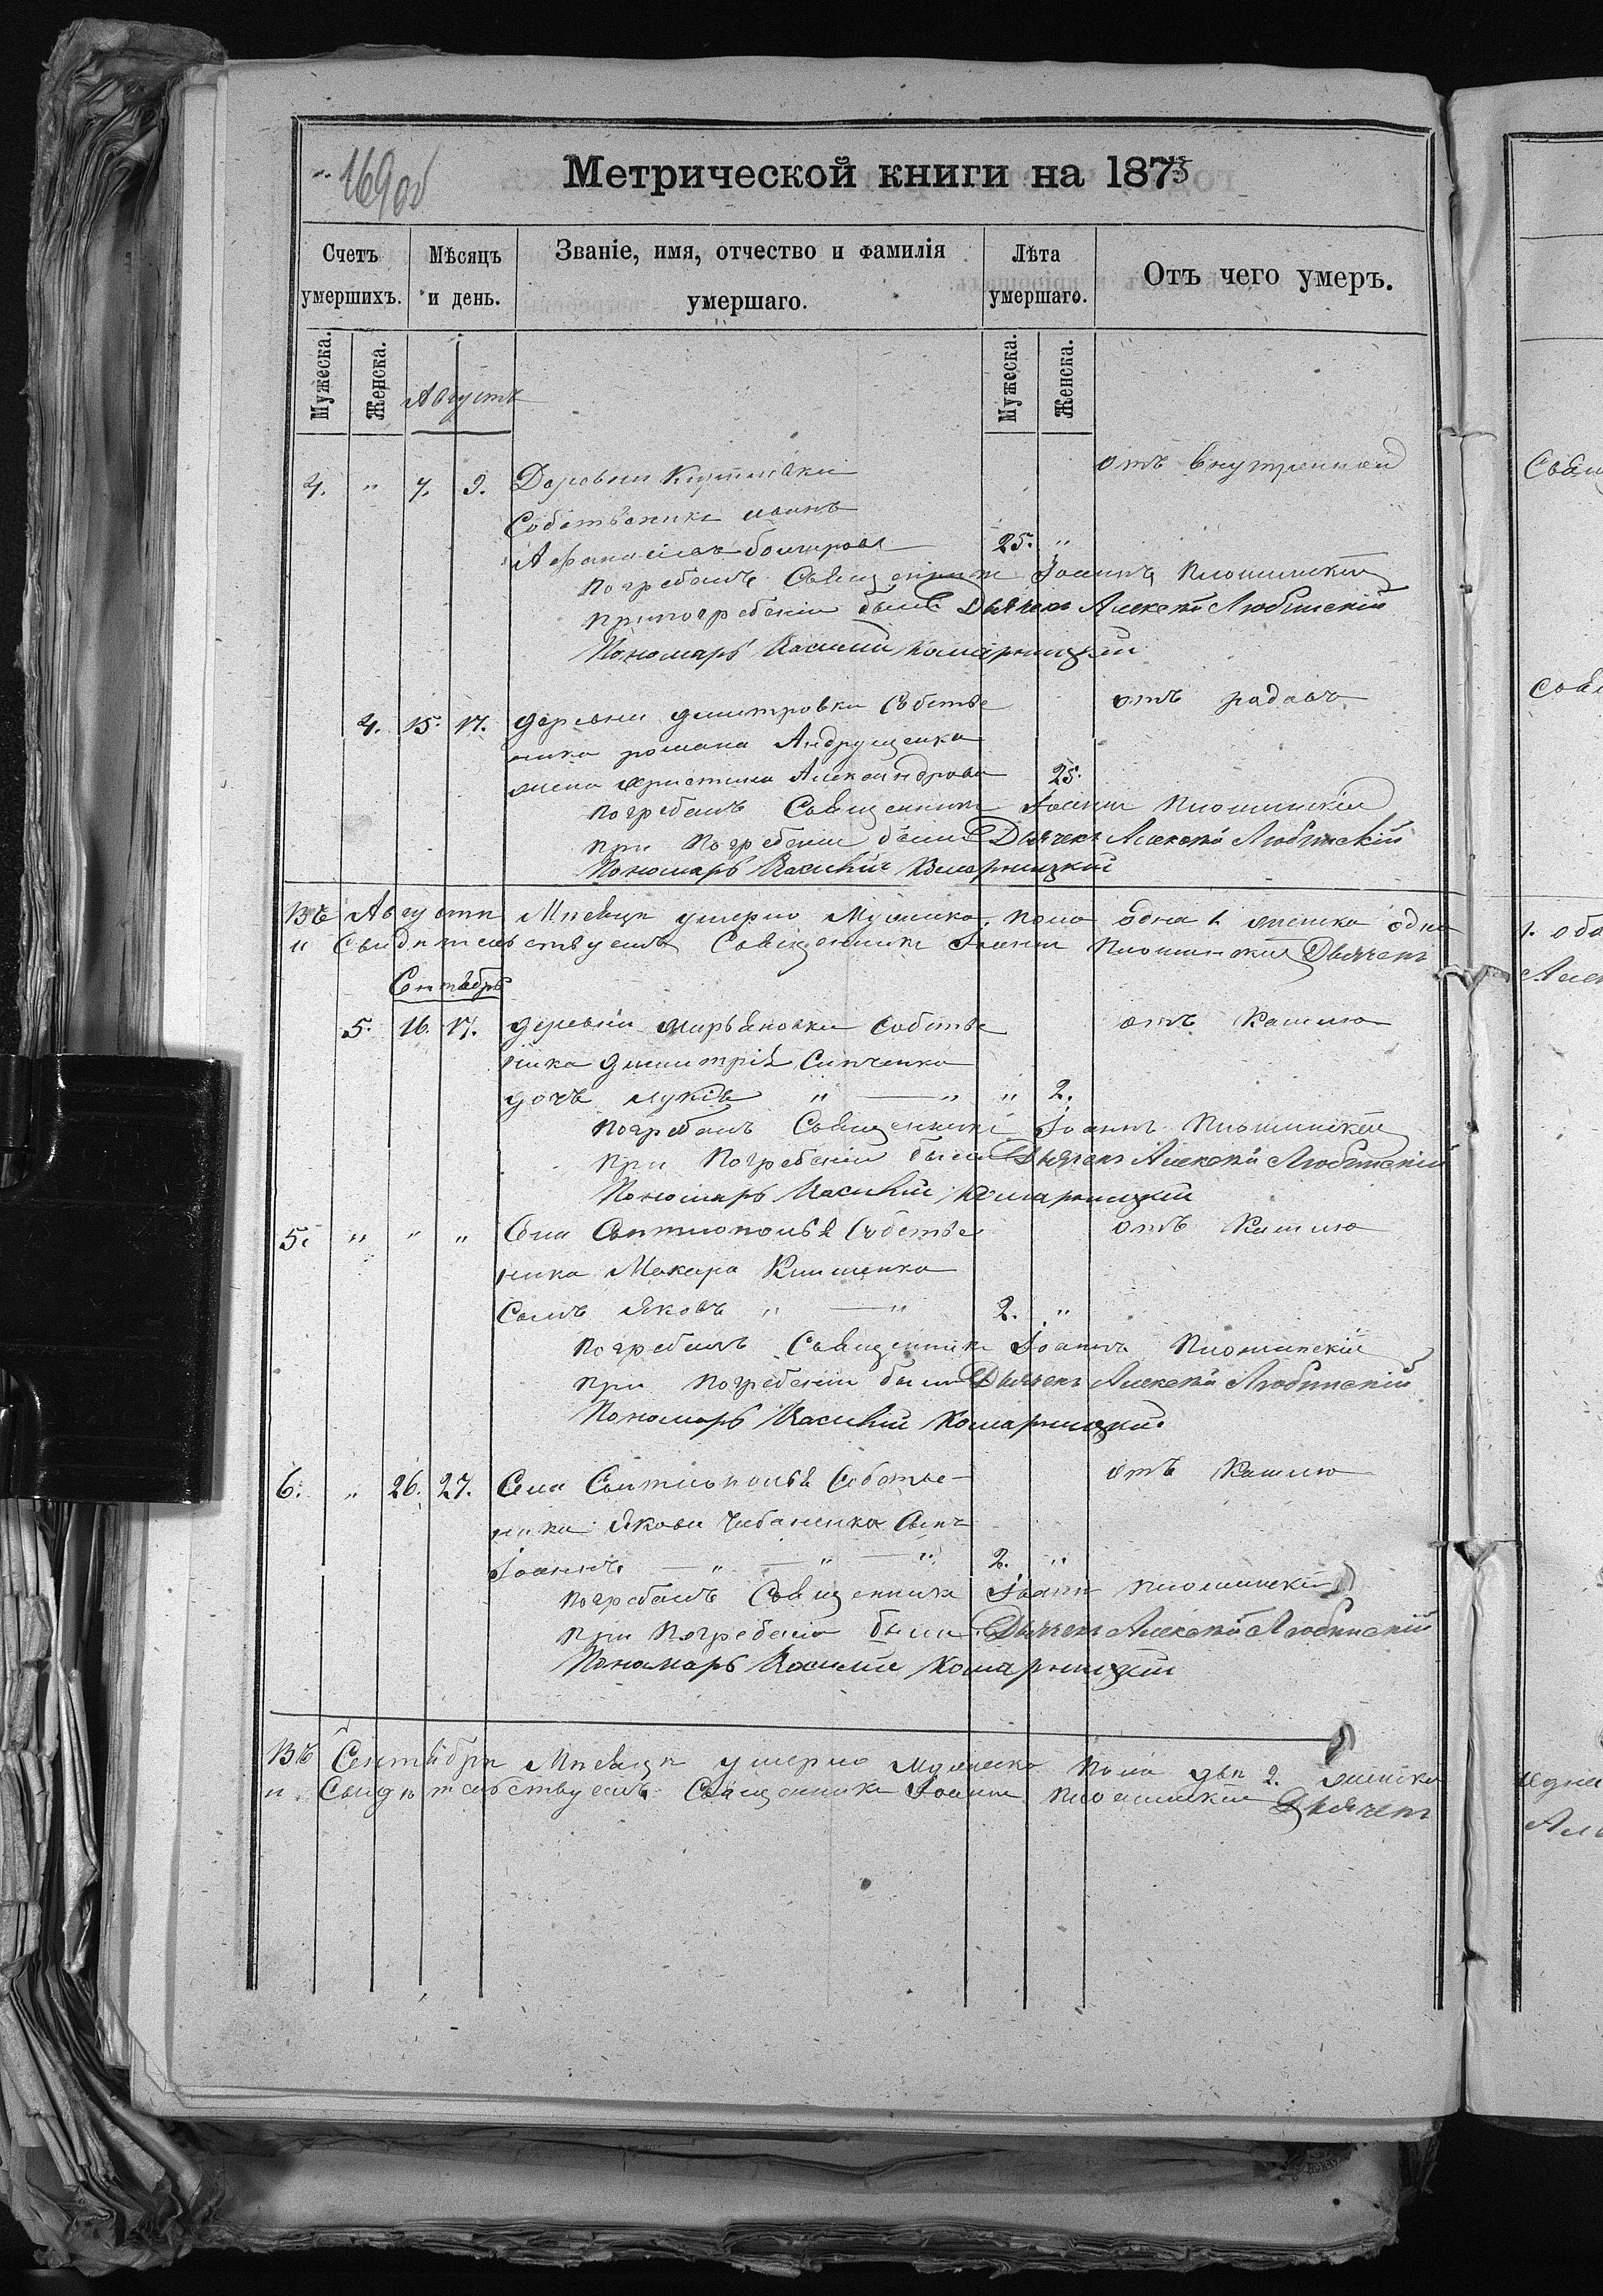 169 об
Метрической книги на 1875
Счетъ умершихъ.
Мѣсяцъ и день.
Званіе, имя, отчество и фамилія умершаго.
Лѣта умершаго.
Отъ чего умеръ.
Мужеска.
Женска.
Августъ
Мужеска.
Женска.
4. " 7. 9. Деревни отъ внутренной
Собственикъ
25. "
погребалъ Священникъ Іоаннъ
при погребеніи были Дьячекъ Алексѣй Любинскій
Пономарь Василій Комарницкій
4. 15. 17. деревни Дмитровки Собстве отъ родовъ
ника романа Андрущенка
жена христина Александрова 25.
погребалъ Священникъ Іоаннъ
при Погребеніи были Дьячекъ Алексѣй Любинскій
Пономарь Василій Комарницкій
Въ Августѣ Мѣсяцѣ умерло Мужеска пола одна 1. женска одна
и Свидѣтельствуемъ Священникъ Іоаннъ Дьячекъ
Сентябрь
5. 16. 17. деревни Марьяновки Собстве отъ Кашлю
ника Димитрія
дочь Лукія " — " " 2.
погребалъ Священникъ Іоаннъ
при Погребеніи были Дьячекъ Алексѣй Любинскій
Пономарь Василій Комарницкій
5. " " " Села Собстве отъ Кашлю
ника Макара Клименка
Сынъ Яковъ " — " 2. "
погребалъ Священникъ Іоаннъ
при погребеніи были Дьячекъ Алексѣй Любинскій
Пономарь Василій Комарницкій.
6. " 26. 27. Села Собстве- отъ Кашлю
ника Якова Чабаненка Сынъ
Іоаннъ. — " — " — " 2. "
погребалъ Священникъ Іоаннъ
при Погребеніи были Дьячекъ Алексѣй Любинскій
Пономарь Василій Комарницкій
Въ Сентябрѣ Мѣсяцѣ умерло Мужеска пола двѣ 2. женска
и Свидѣтельствуемъ Священникъ Іоаннъ Дьячекъ